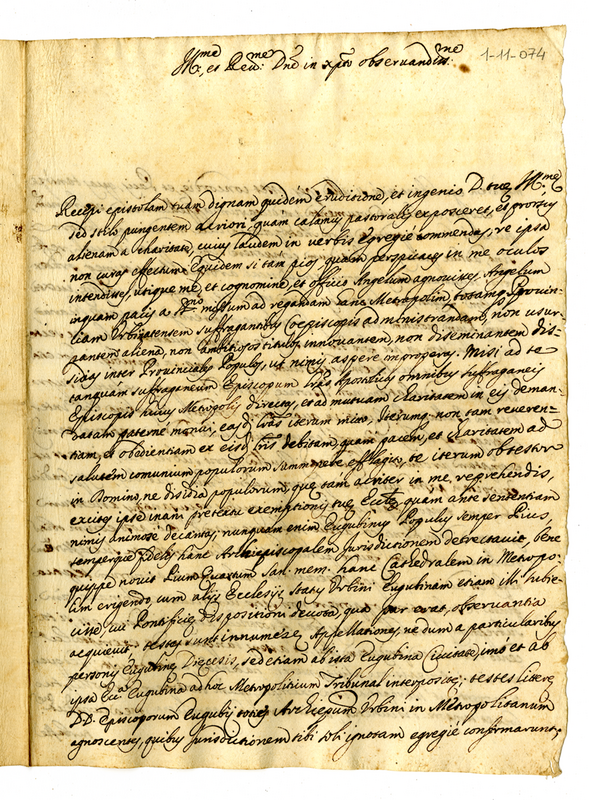 Ill.me et Reu.me Dne in xpto obseruandme
1-11-074
Recepi epistolam tuam dignam quidem eruditione, et ingenio D. tuę Ill.me
sed stilo pungentem acriori, quam calamus pastoralis exposceret, et prorsus
alienam a charitate, cuius laudem in verbis egregiè commendas, re ipsa
non curas effectum. Equidem si tam pios, quam perspicaces in me oculos
intendisses, utique me et cognomine, et officio Angelum agnouisses, Angelum
inquam pacis a missum ad regendam hanc Metropolim, totamq Prouin-
ciam Urbinatensem suffragantibus Coepiscopis administrandam, non usur-
pantem aliena, non ambitiosos titulos innouantem, non diseminantem dis-
sidia inter Prouinciales Populos, ut nimis asperè improperas. Misi ad te
tanquàm suffraganeum Episcopum Lras Apostolicas omnibus suffraganeis
Episcopis huius Metropolis directas, et ad mutuam claritatem in eis deman-
datam paternè monui, easd. Lras iterum mitto, Iterumq non tam reueren-
tiam, et obedientiam ex eisd. Lris debitam, quam pacem, et charitatem ad
salutem comunium populorum summoperè efflagito, te iterum obtestor
in Domino, ne disidia populorum, que tam acriter in me reprehendis,
excites ipse inani pretextu exemptionis tuę Eccl. quam ante sententiam
nimis animosè decantas; nunquam enim Eugubinus Populus semper Pius,
semperque fidelis hanc Archiepiscopalem Jurisdictionem detrectauit, bene
quippe nouit Pium Quartum San. mem. hanc Cathedralem in Metropo-
lim erigendo, cum alijs Ecclesijs Status Urbini Eugubinam etiam illi subie-
cisse, cui Pontificis dispositioni deuota, qua par erat, obseruantia
acquieuit, testes sunt innumerę Appellationes, ne dum a particularibus
personis Eugubinę Diecesis, sed etiam ab ista Eugubina Ciuitate, imò et ab
ipsa Ecc.a Eugubina ad hoc Metropoliticum Tribunal interpositę; testes literę
DD. Episcoporum Eugubij toties Archiepum Urbini in Metropolitanum
agnoscentes, quibus Jurisdictionem tibi soli ignotam egregiè confirmarunt;